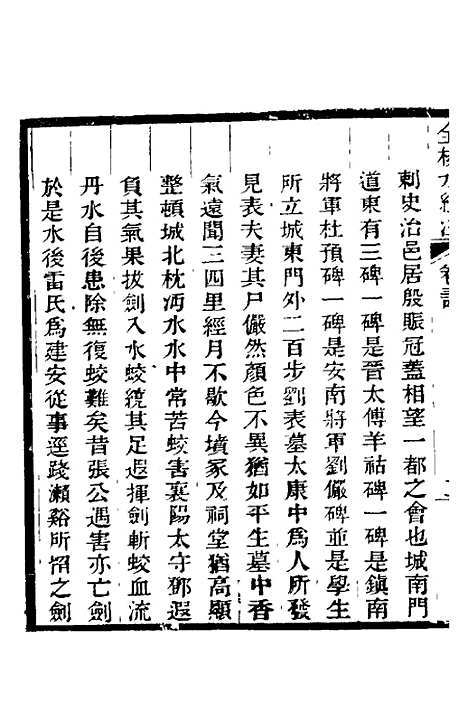 刺史治邑居殷賑冠蓋相望一都之會也城南門
道東有三碑一碑是晉太傅羊祜碑一碑是鎮南
將軍杜預碑一碑是安南將軍劉儼碑並是學生
所立城東門外二百步劉表墓太康中爲人所發
見表夫妻其尸儼然顏色不異猶如平生墓中香
氣遠聞三四里經月不歇今墳冢及祠堂猶高顯
整頓城北枕沔水水中常苦蛟害襄陽太守鄧遐
負其氣果拔劍入水蛟繞其足遐揮劍斬蛟血流
丹水自後患除無復蛟難矣昔張公遇害亦亡劍
於是水後雷氏爲建安從事逕踐瀨谿所畱之劍